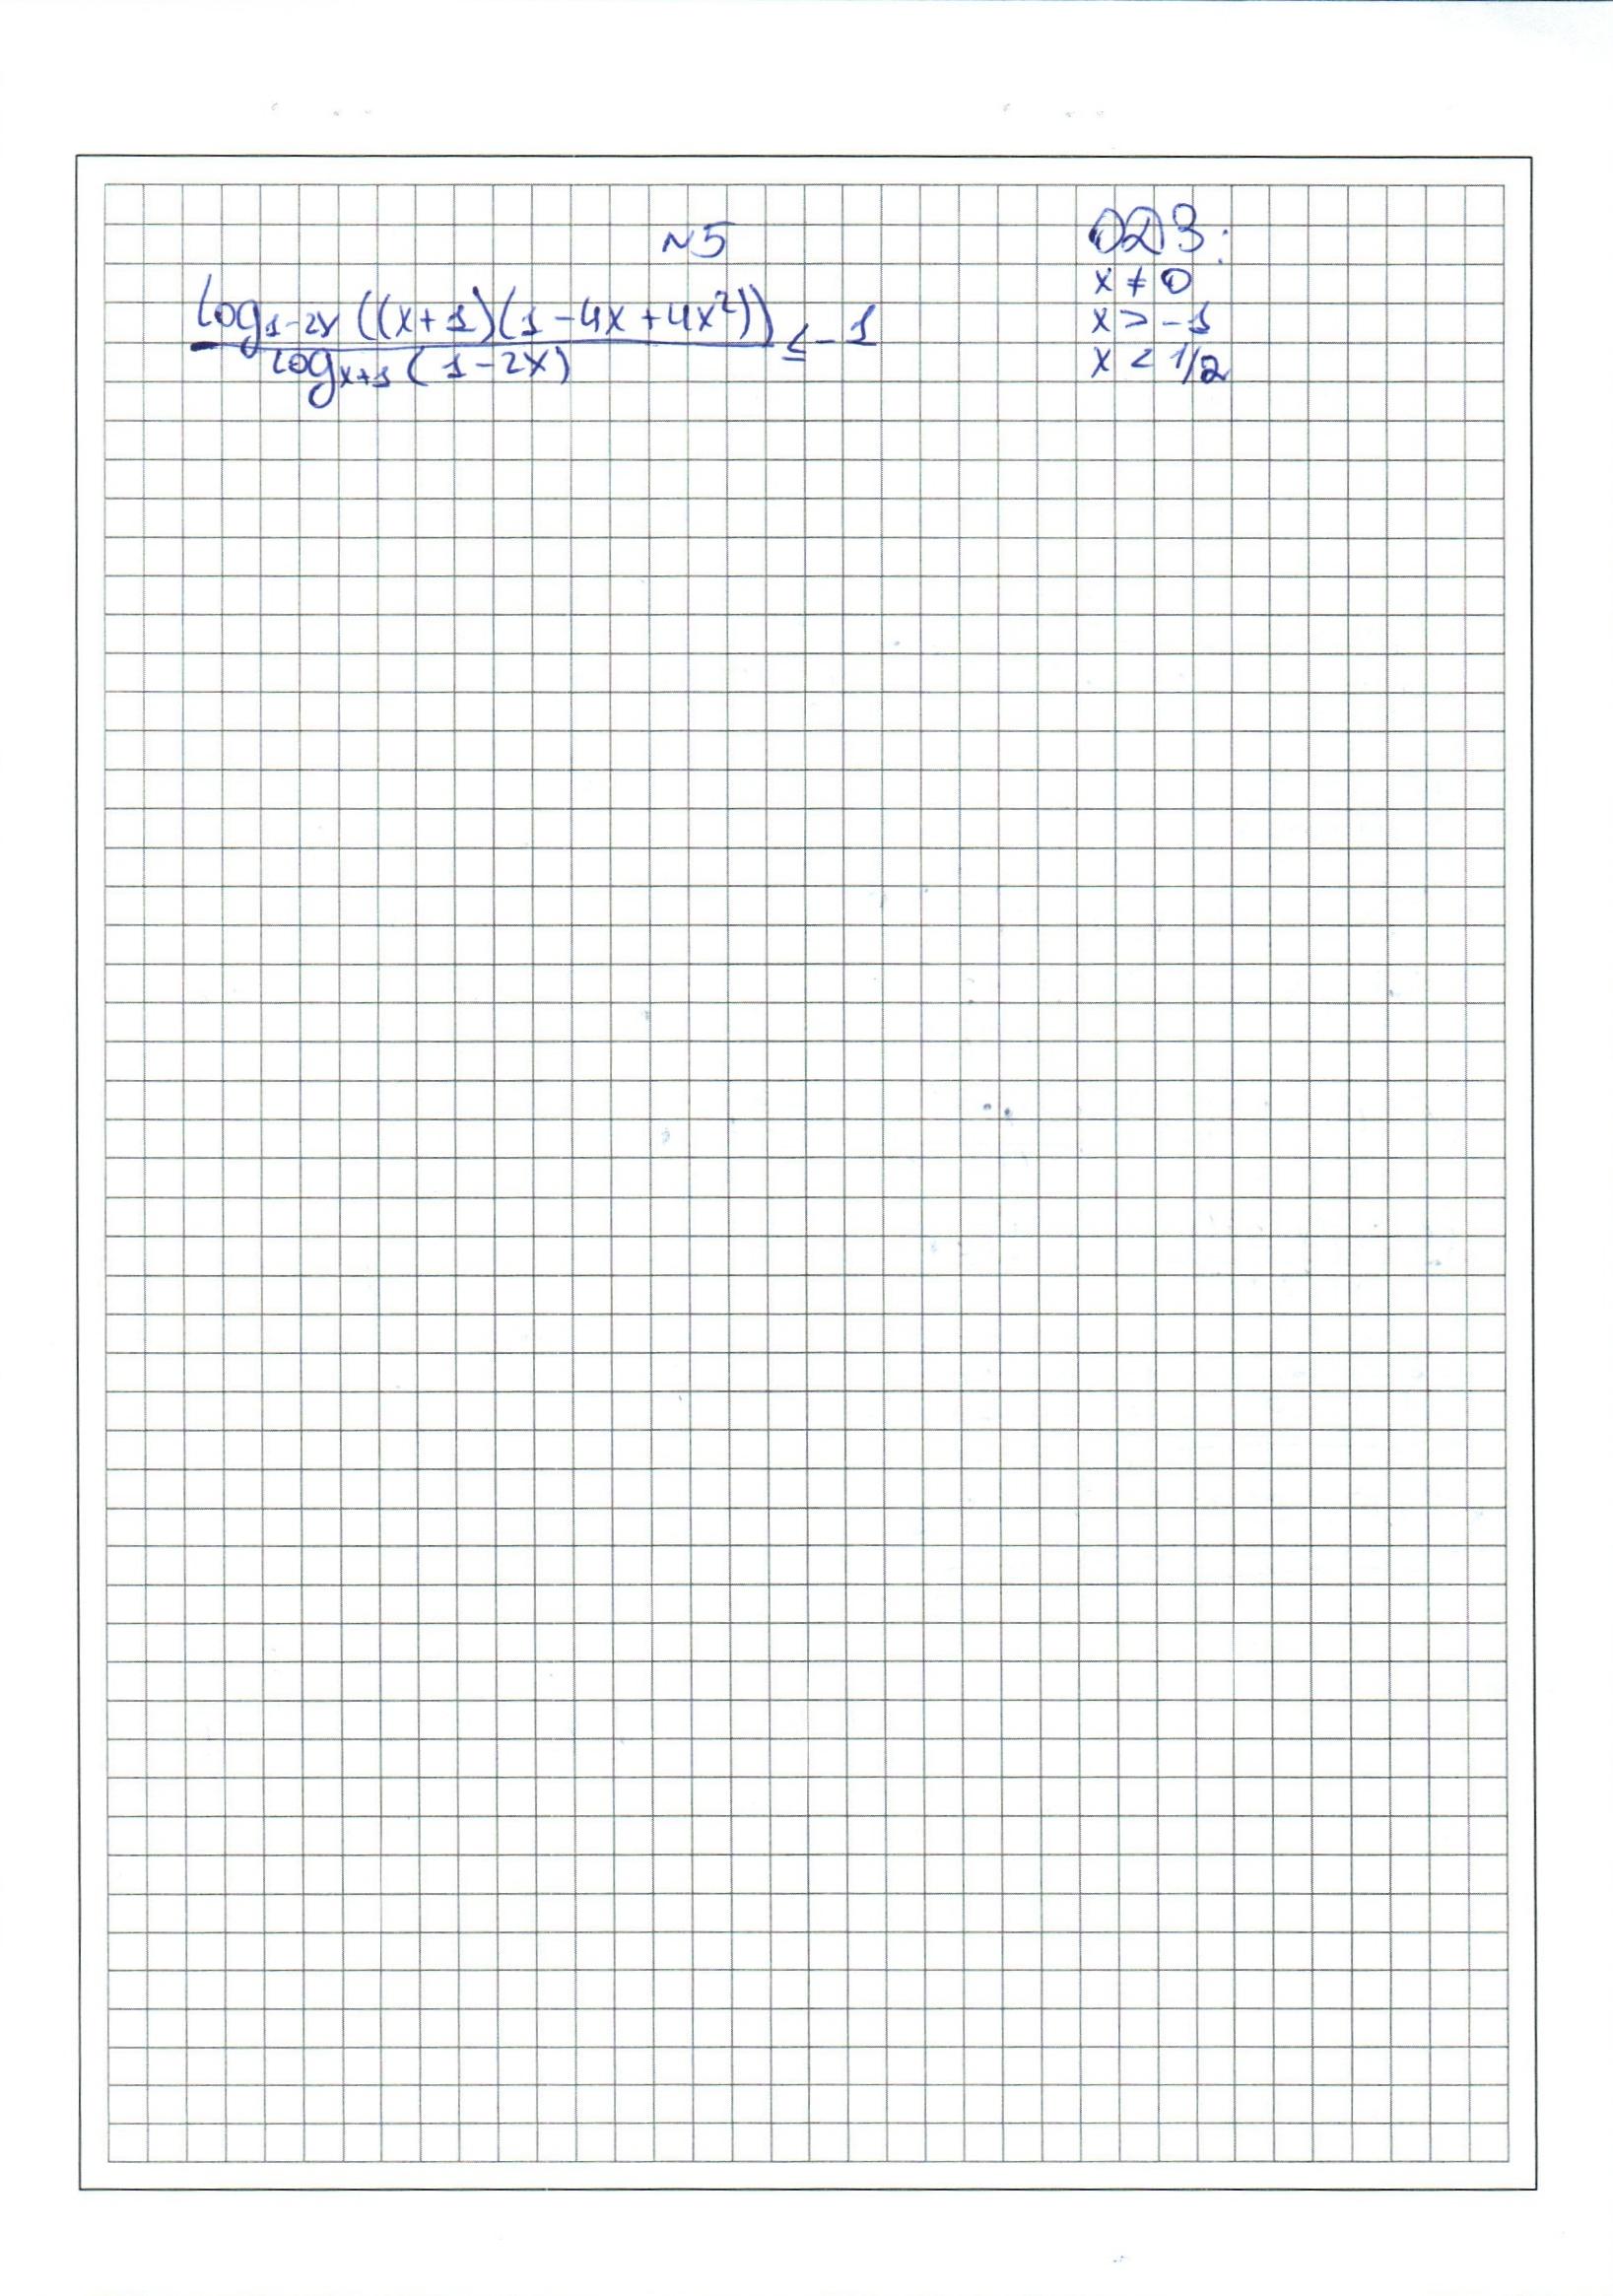 №5
log₁₋₂ₓ ((x+1)(1-4x+4x²))
log ₓ₊₁ (1-2x)
≤ -1
ОДЗ:
x ≠ 0
x > -1
x < 1/2